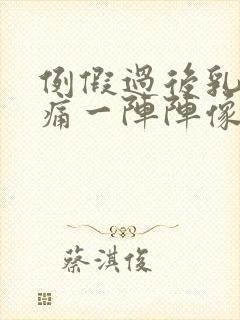 例假過後乳
痛一陣陣像
蔡淇俊